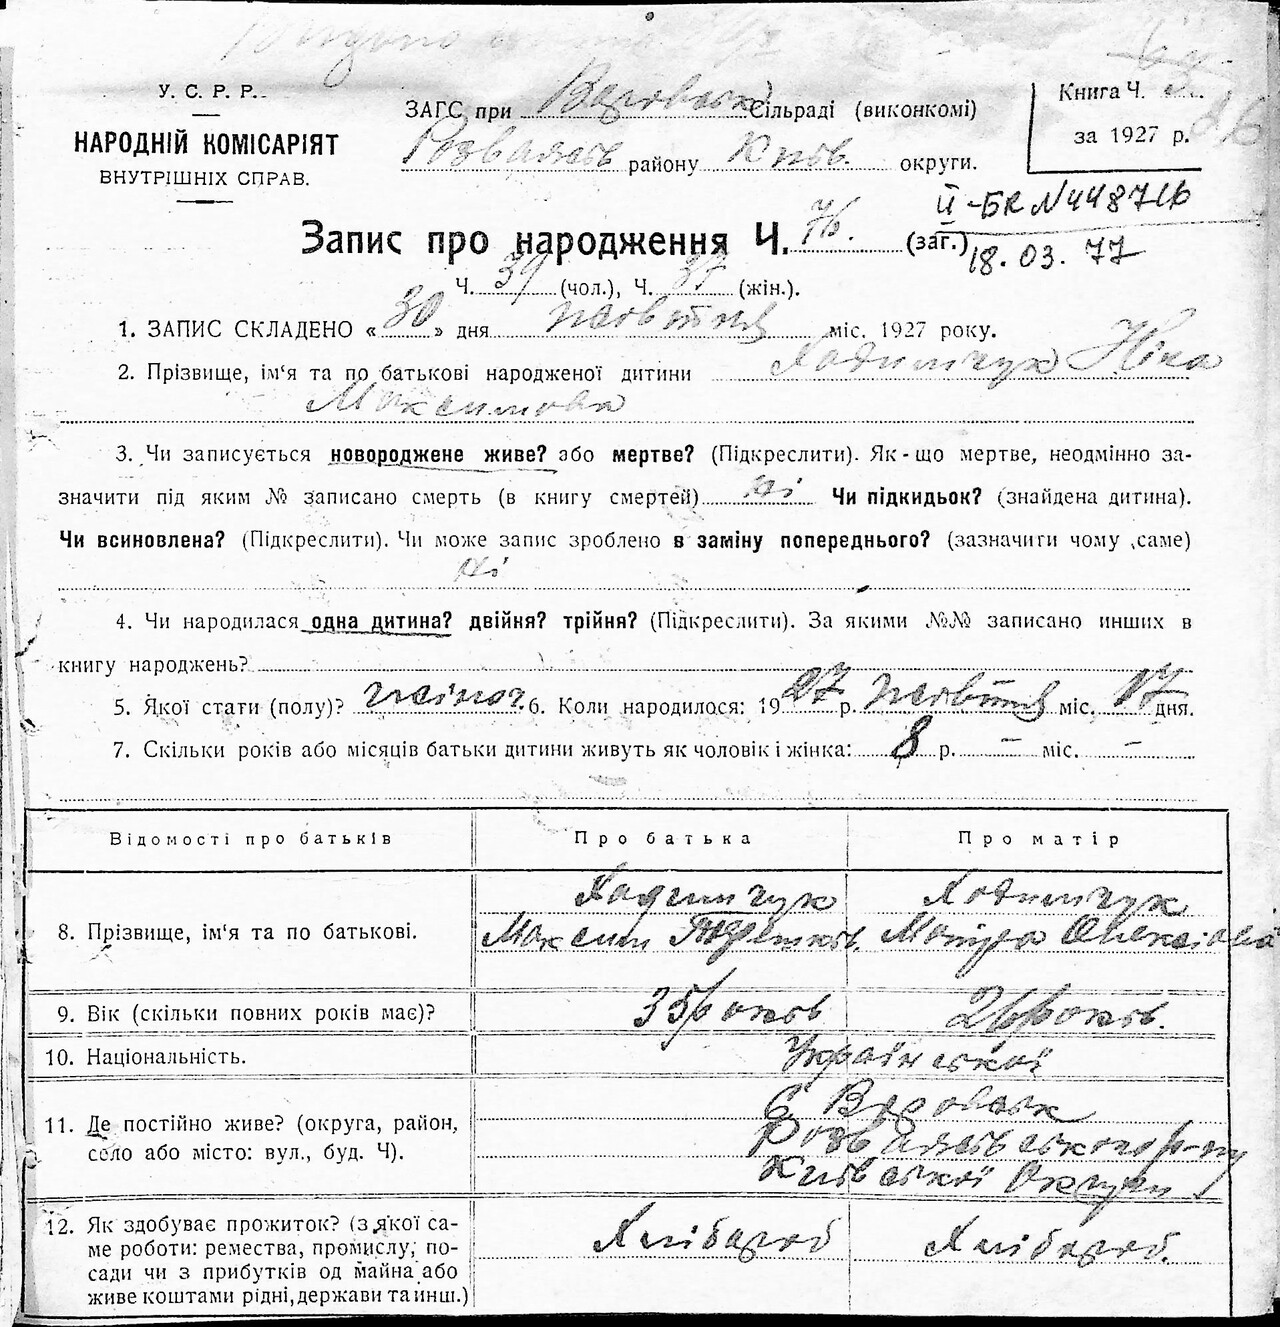 У. С. Р. Р.
НАРОДНІЙ КОМІСАРІЯТ
ВНУТРІШНІХ СПРАВ.
ЗАГС при Сільраді (виконкомі)
Розважів району Київ. округи.
Книга Ч.
за 1927 р.
ІІ-БК N 448716
18.03.77
Запис про народження Ч. 76. (заг.)
Ч. 39 (чол.), Ч. 37 (жін.).
1. ЗАПИС СКЛАДЕНО « 30 » дня жовтня міс. 1927 року.
2. Прізвище, ім‘я та по батькові народженої дитини Ходимчук Ніна
Максимова
3. Чи записується новороджене живе? або мертве? (Підкреслити). Як-що мертве, неодмінно за-
значити під яким № записано смерть (в книгу смертей) ні Чи підкидьок? (знайдена дитина).
Чи всиновлена? (Підкреслити). Чи може запис зроблено в заміну попереднього? (зазначити чому саме)
ні
4. Чи народилася одна дитина? двійня? трійня? (Підкреслити). За якими №№ записано инших в
книгу народжень?
5. Якої стати (полу)? жіноч. 6. Коли народилося: 1927 р. жовтня міс. 17 дня.
7. Скільки років або місяців батьки дитини живуть як чоловік і жінка: 8 р. – міс. –
Відомості про батьків Про батька Про матір
8. Прізвище, ім‘я та по батькові.
Ходимчук Ходимчук
Максим Мотря Олексіова
9. Вік (скільки повних років має)? 35 років 26 років.
10. Національність. Української
11. Де постійно живе? (округа, район,
село або місто: вул., буд. Ч).
С.
Розважівського р-ну
Київської Округи
12. Як здобуває прожиток? (з якої са-
ме роботи: ремества, промислу, по-
сади чи з прибутків од майна або
живе коштами рідні, держави та инш.)
Хлібороб Хлібороб.